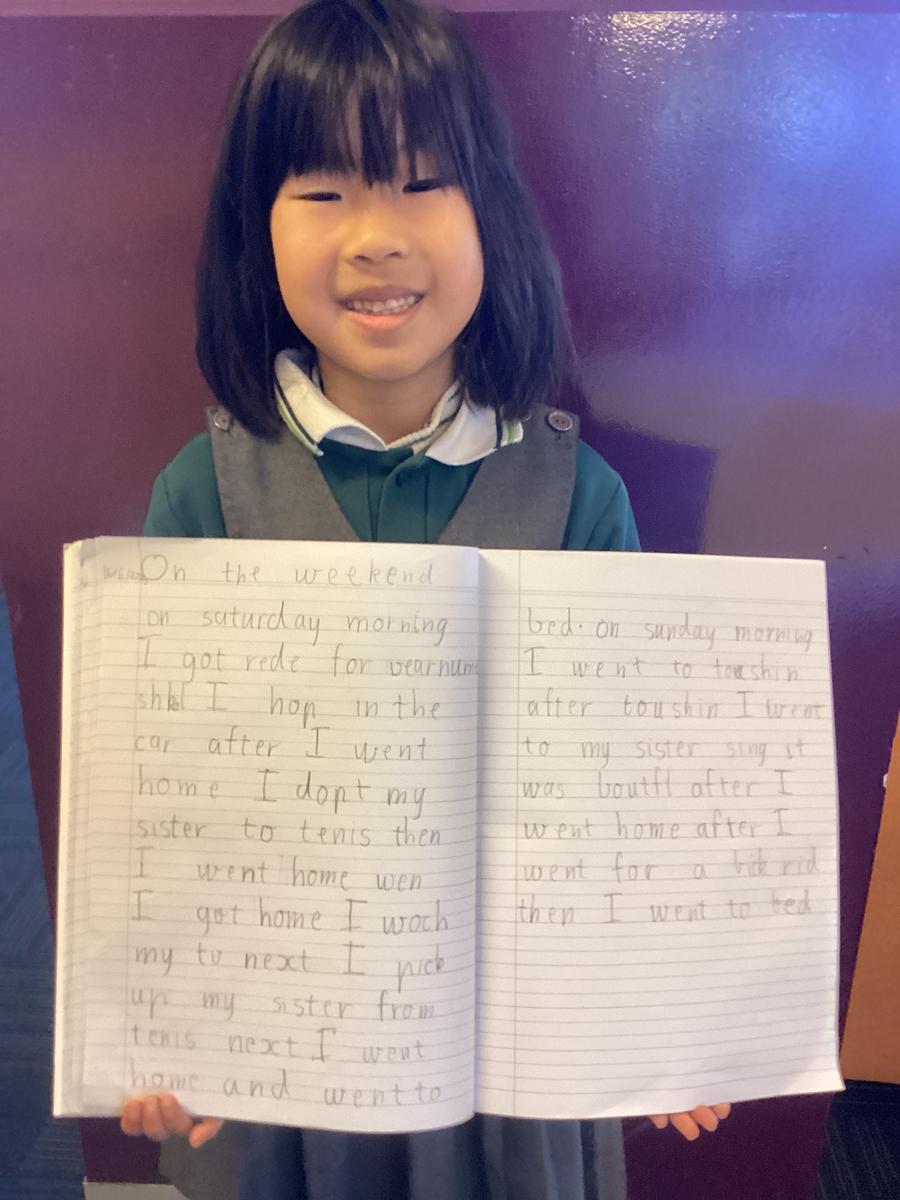 On the weekend
on saturday morning
I got rede for vearnum
shkl I hop in the
car after I went
home I dopt my
sister to tenis then
I went home wen
I got home I woch
my tv next I pick
up my sister from
tenis next I went
home and went to
bed. on sunday morning
I went to toushin
after toushin I went
to my sister sing it
was boutfl after I
went home after I
went for a bik rid
then I went to bed